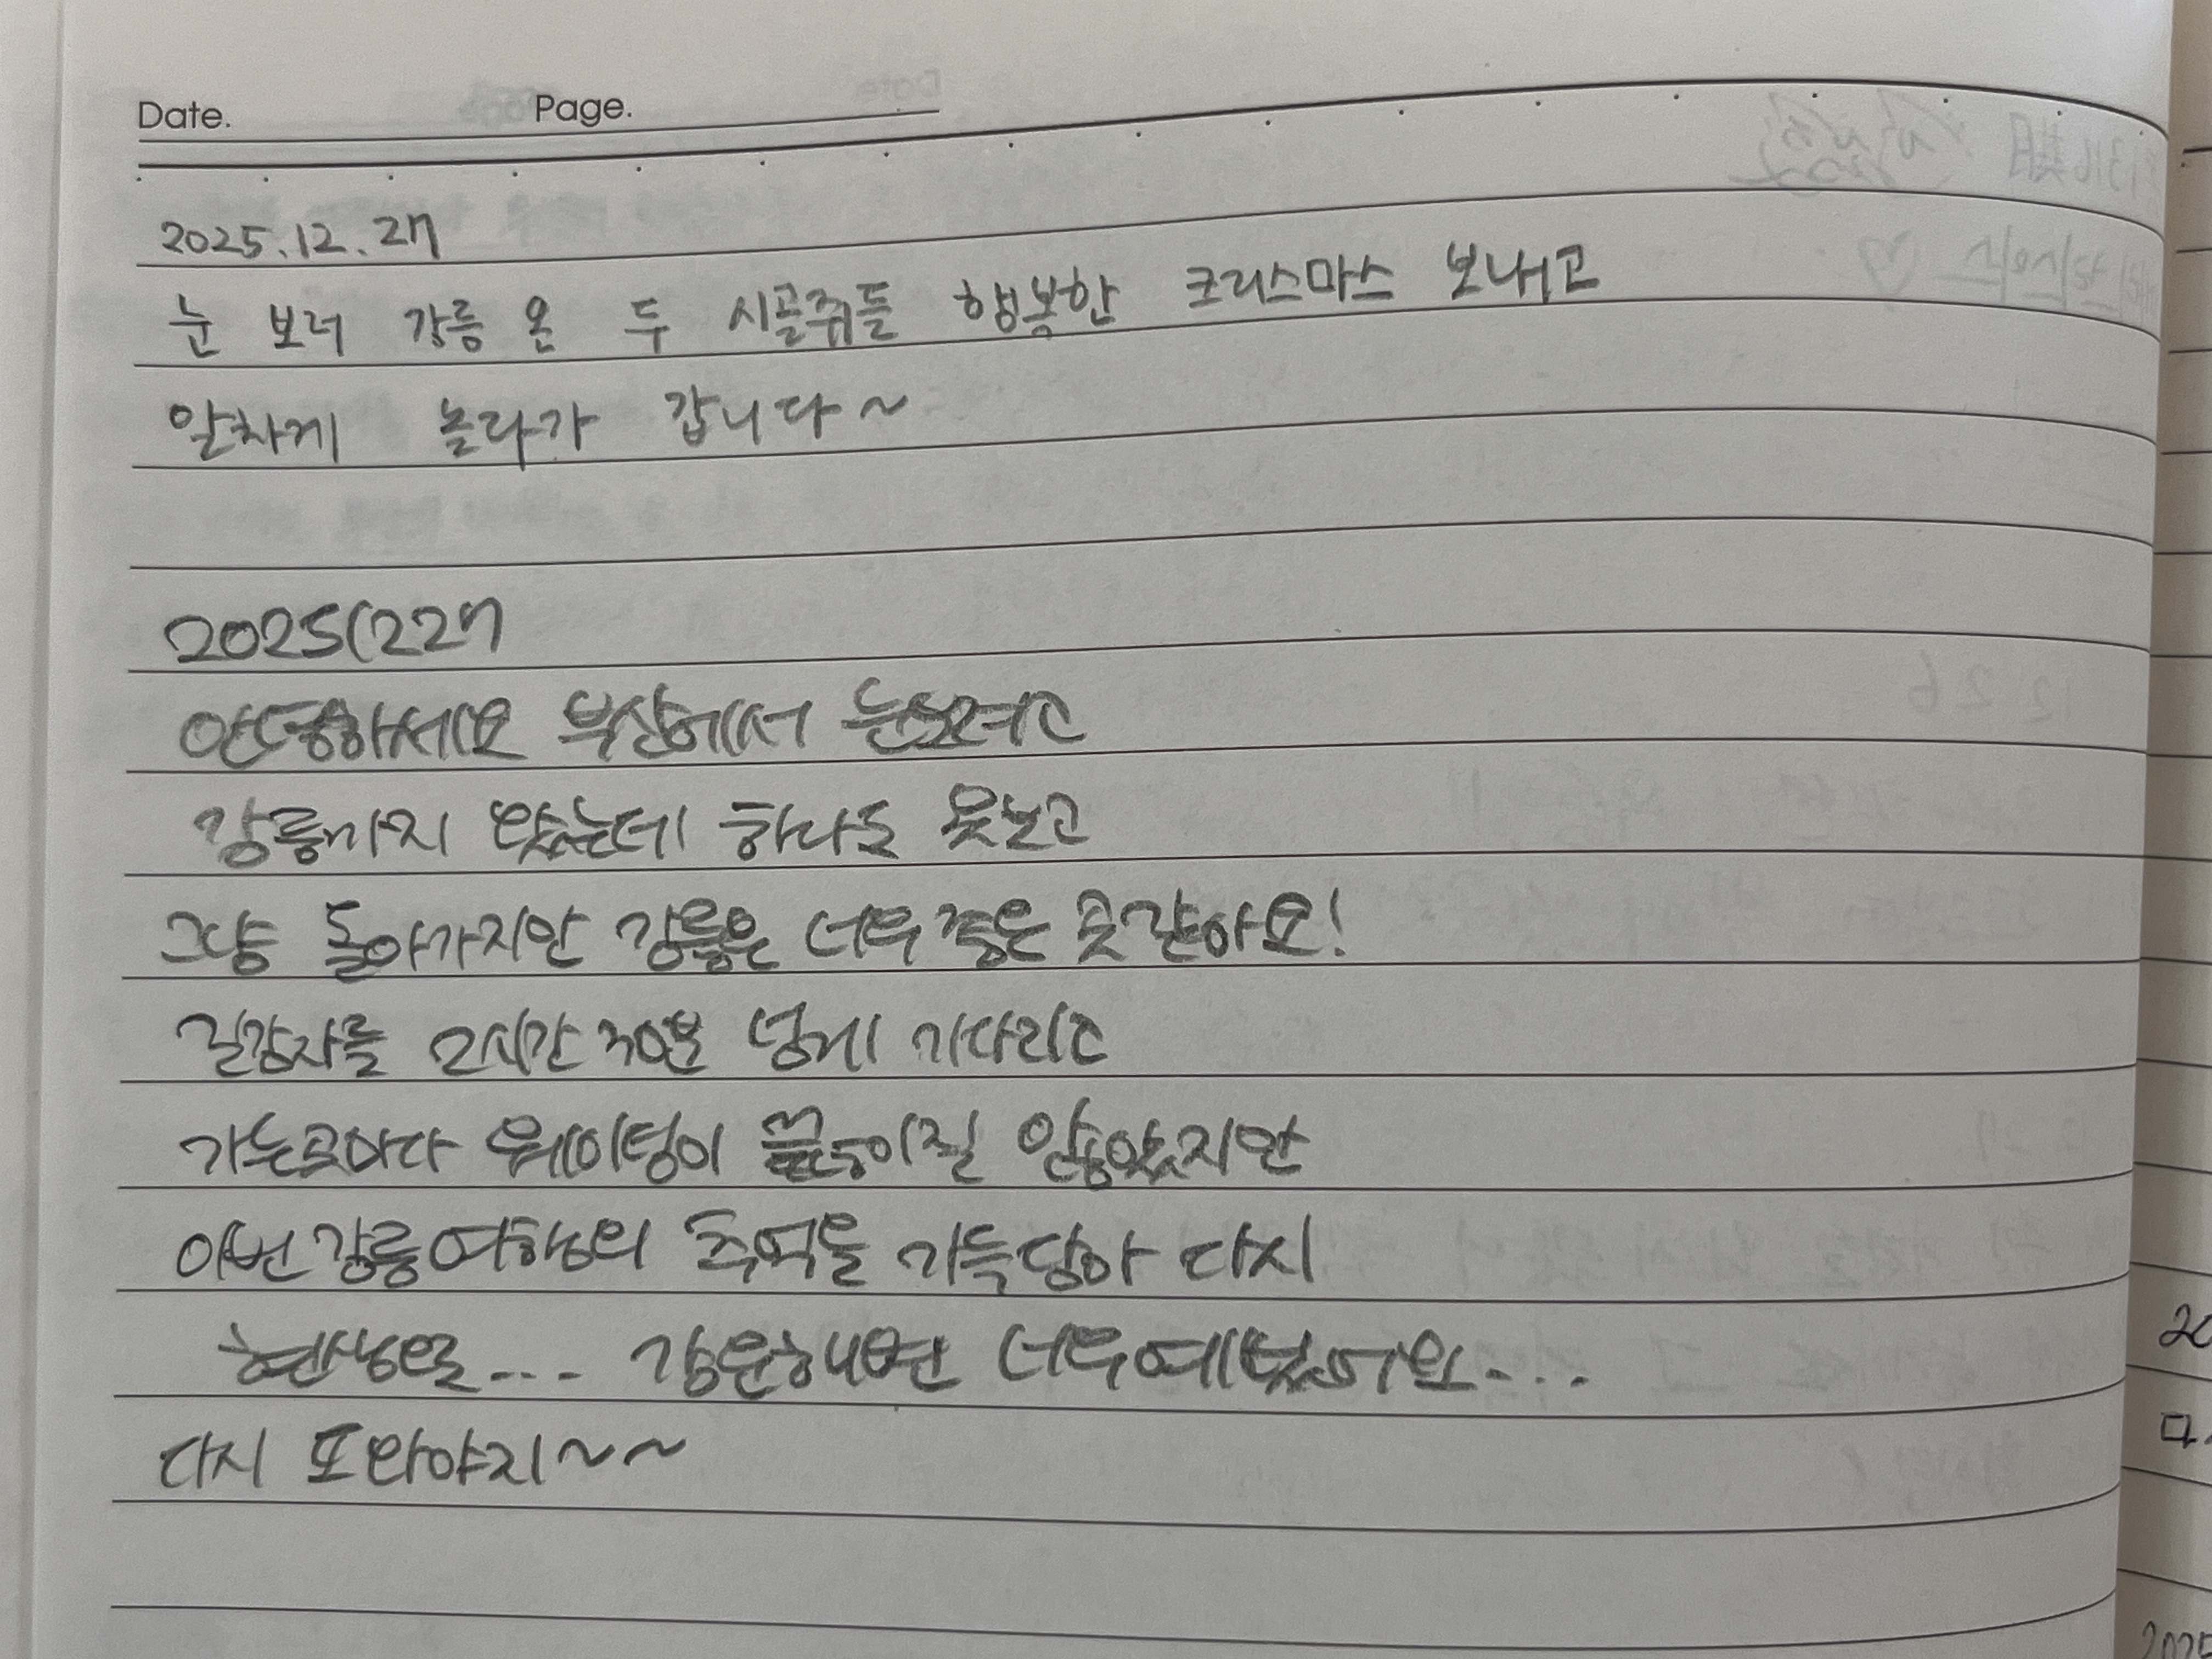 Date. Page.
2025.12.27
눈 보러 강릉 온 두 시골쥐들 행복한 크리스마스 보내고
알차게 놀다가 갑니다~
20251227
안녕하세요 부산에서 눈보려고
강릉까지 왔는데 하나도 못보고
그냥 돌아가지만 강릉은 너무 좋은 곳 같아요!
길감자를 2시간 30분 넘게 기다리고
가는곳마다 웨이팅이 끊이질 않았지만
이번 강릉여행의 추억을 가득담아 다시
현생을... 강문해변 너무예뻤어요...
다시 또 와야지~~